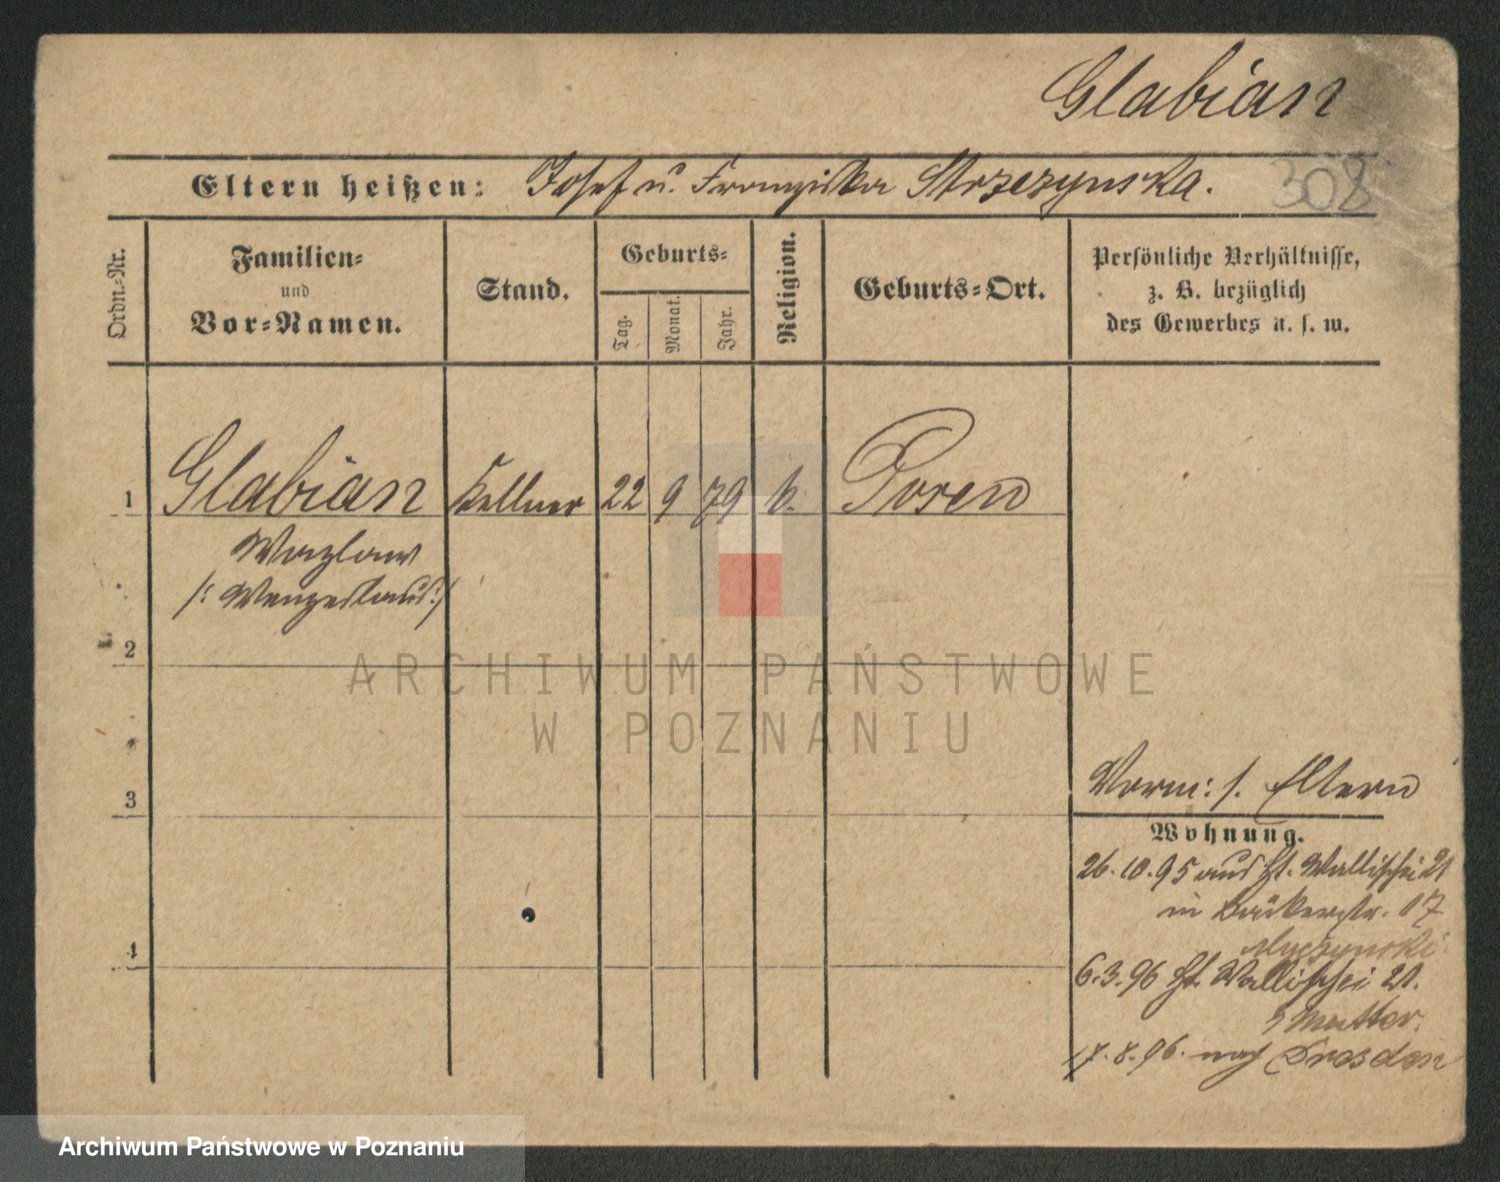 Glabian
Eltern heißen: Josef u. Franziska Strzezynska.
308
Ordn.-Nr.
Familien-
und
Vor-Namen.
Stand.
Geburts-
Tag.
Monat.
Jahr.
Religion.
Geburts-Ort.
Persönliche Verhältnisse,
z. B. bezüglich
des Gewerbes u. s. w.
1 Glabian Kellner 22 9 79 k. Posen
Wazlaw
/: Wenzeslaus :/
2
3
4
Vorm: s. Eltern
Wohnung.
26.10.95 aus St. Wallischei 21
in Bäckerstr. 17
6.3.96 St. Wallischei 21.
Mutter.
17.8.96. nach Dresden
ARCHIWUM PAŃSTWOWE
W POZNANIU
Archiwum Państwowe w Poznaniu